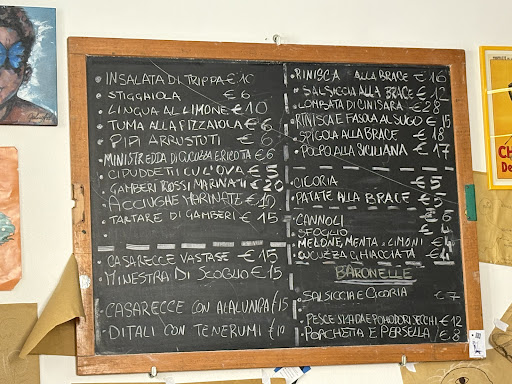 INSALATA DI TRIPPA € 10
STIGGHIOLA € 6
LINGUA AL LIMONE € 10
TUMA ALLA PIZZAIOLA € 6
PIPI ARRUSTUTI € 6
MINISTREDDA DI CUCUZZA E RICOTA € 6
CIPUDDETTI CU L'OVA € 5
GAMBERI ROSSI MARINATI € 20
ACCIUGHE MARINATE € 10
TARTARE DI GAMBERI € 15
CASARECCE VASTASE € 15
MINESTRA DI SCOGLIO € 15
CASARECCE CON ALALUNGA € 15
DITALI CON TENERUMI € 10
RINISCA ALLA BRACE € 16
SALSICCIA ALLA BRACE € 12
LOMBATA DI CINISARA € 28
RINISCA E FASOLA AL SUGO € 15
SPIGOLA ALLA BRACE € 18
POLPO ALLA SICILIANA € 17
CICORIA € 5
PATATE ALLA BRACE € 5
CANNOLI € 6
SFOGLIO € 4
MELONE, MENTA E LIMONI € 4
CUCUZZA GHIACCIATA € 4
BARONELLE
SALSICCIA E CICORIA € 7
PESCE SPADA E POMODORI SECCHI € 12
PORCHETTA E PERSELLA € 8